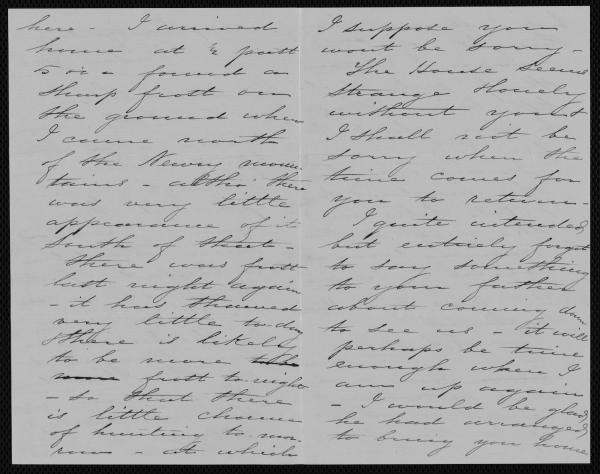 here - I arrived
home at ½ past
5 & found a
sharp frost on
the ground when
I came north
of the Newry moun-
tains - altho' there
was very little
appearance of it
South of that -
There was frost
last night again
- it has thawed
very little to-day
& there is likely
to be more to be
more frost to-night
- so that there
is little chance
of hunting to-mor-
row - at which
I suppose you
wont be sorry -
The House seems
strange & lonely
without you &
I shall not be
sorry when the
time comes for
you to return -
I quite intended
but entirely forgot
to say something
to your father
about coming down
to see us - it will
perhaps be time
enough when I
am up again
- I would be glad
he had arranged
to bring you home